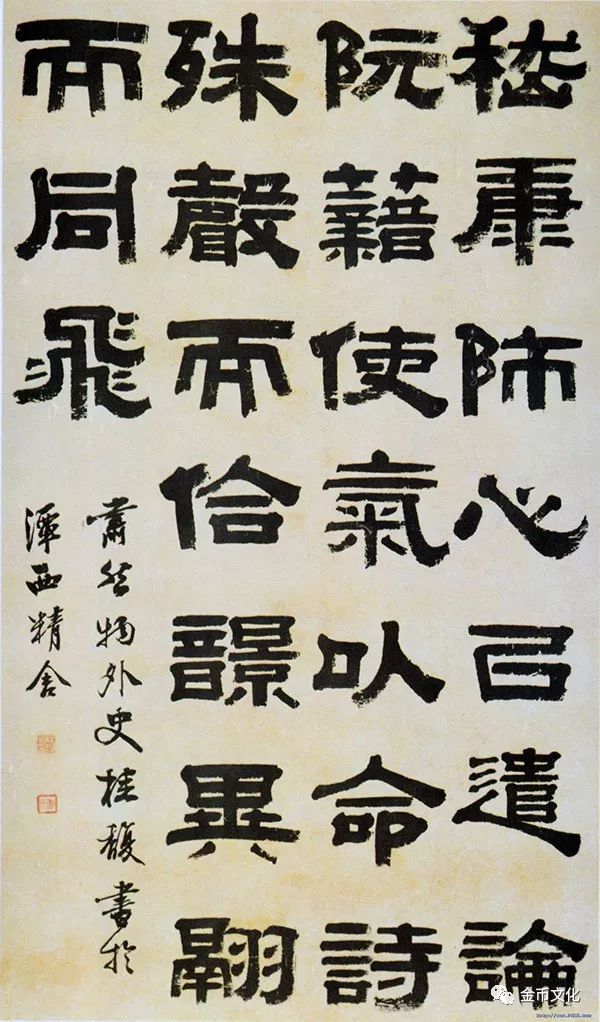 嵇康師心㠯遣論
阮藉使氣以命詩
殊聲而佮響異翮
而同飛
肅然物外史桂馥書於
潭西精舍
金币文化